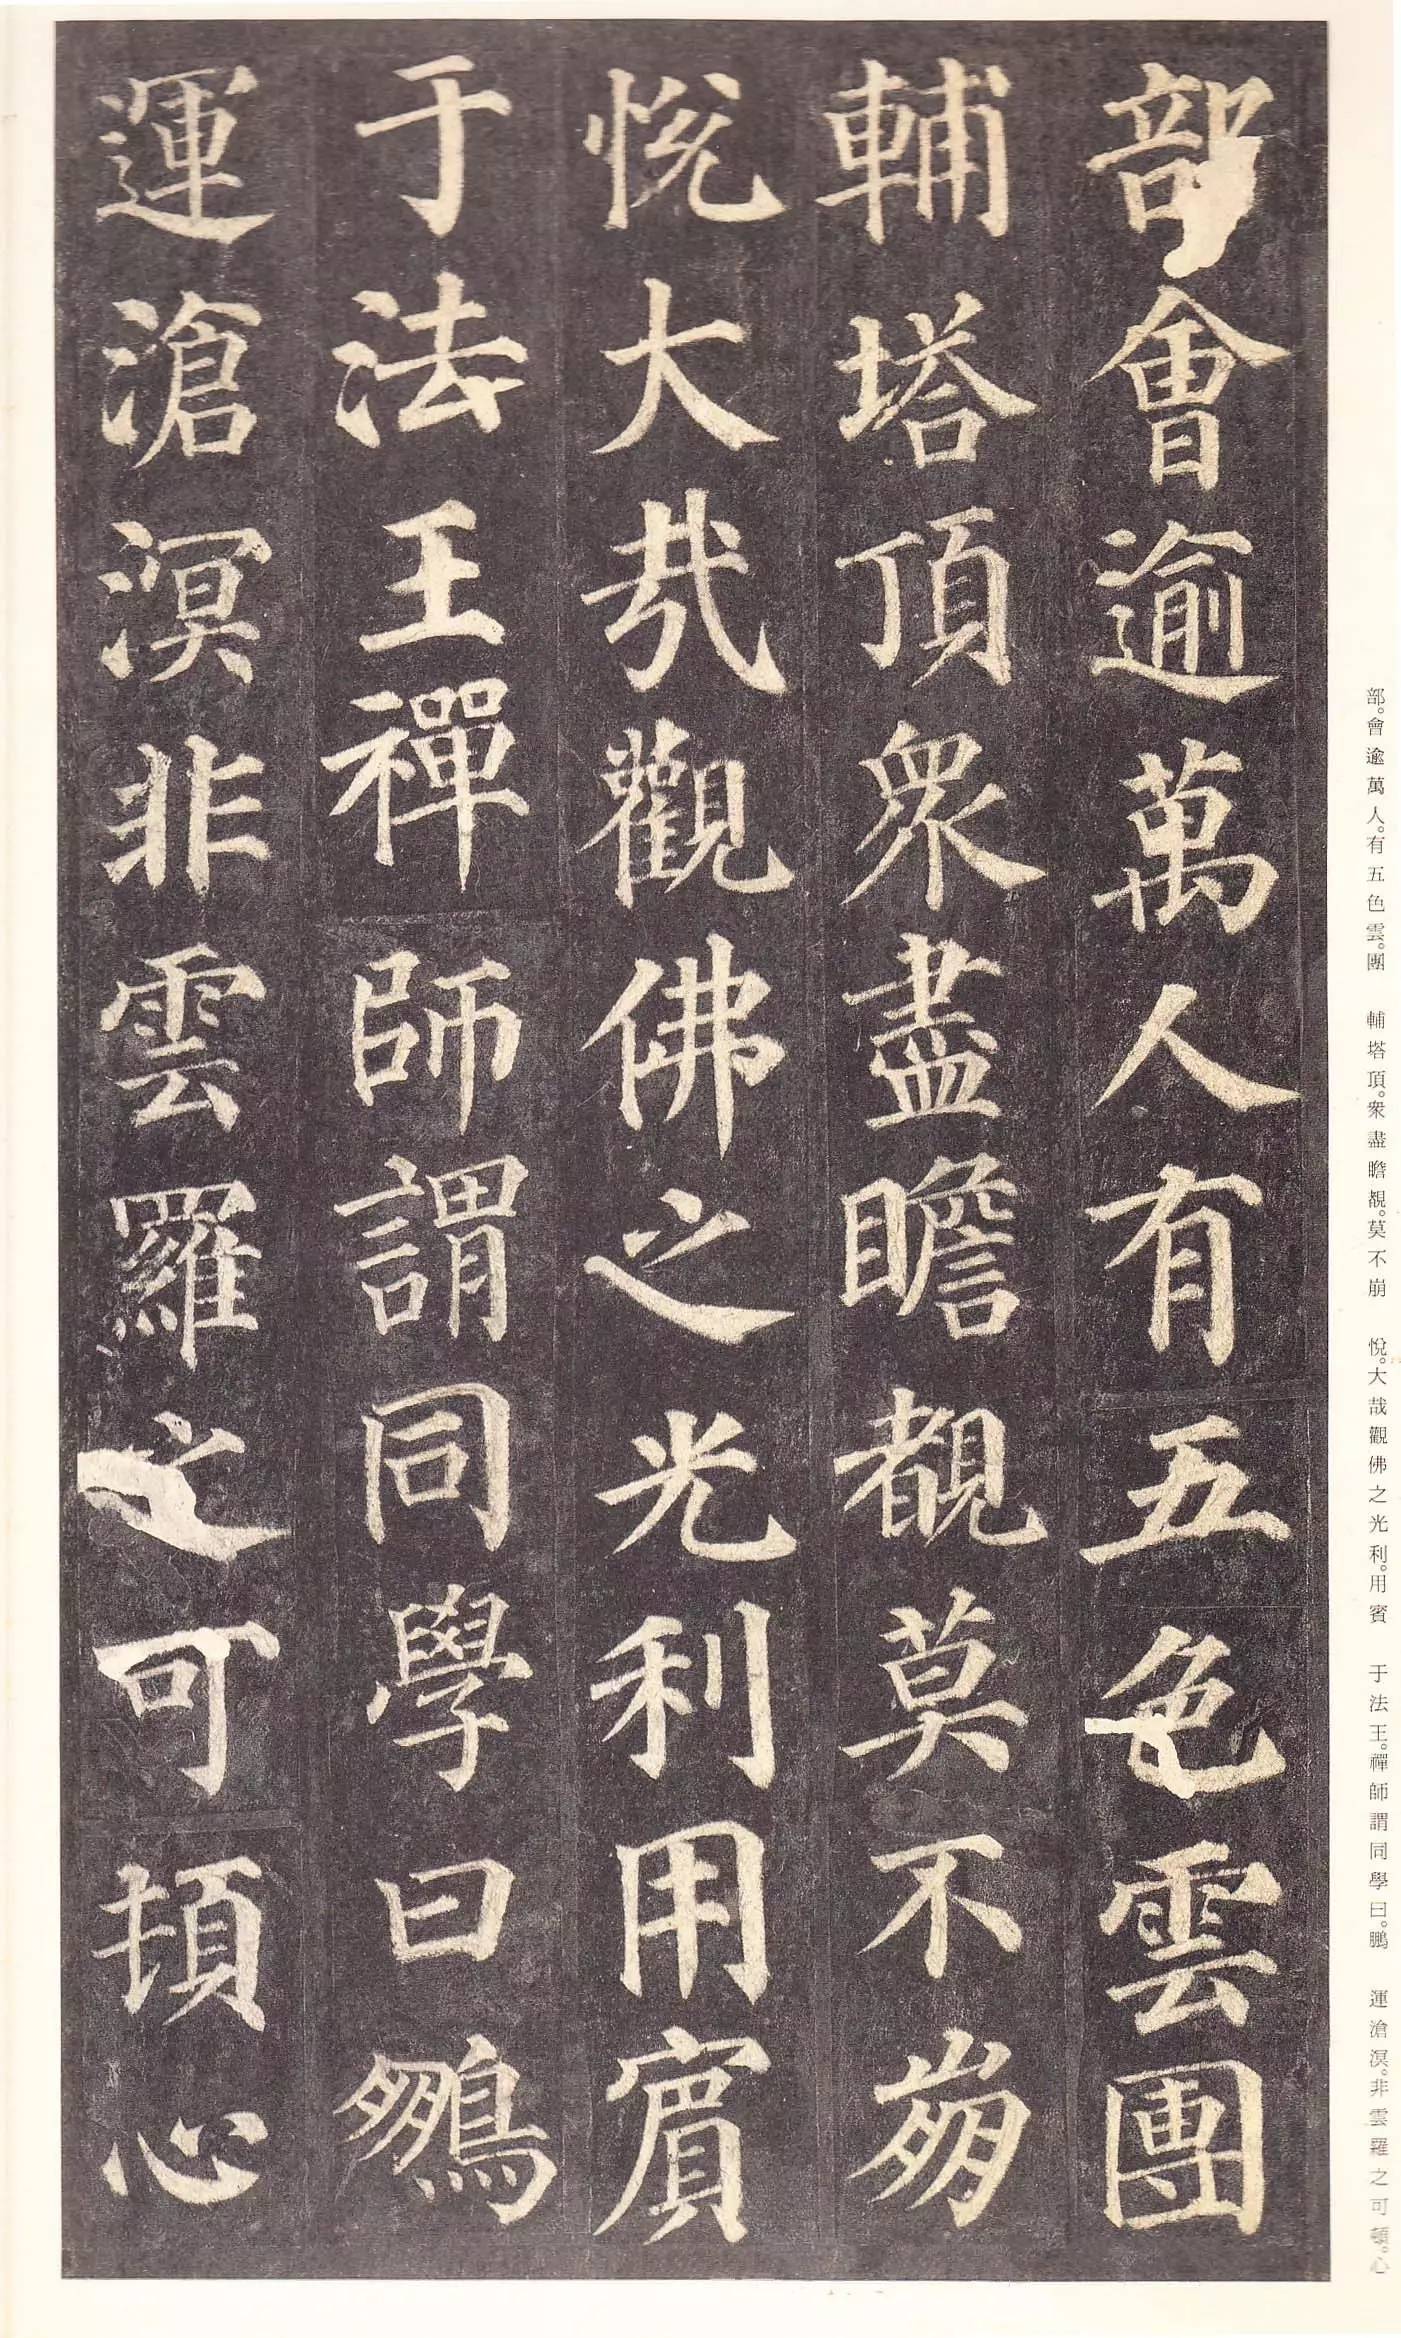 部會逾萬人有五色雲團
輔塔頂衆盡瞻覩莫不崩
悅大哉觀佛之光利用賓
于法王禪師謂同學曰鵬
運滄溟非雲羅之可頓心
部。會逾萬人。有五色雲。團　輔塔頂。衆盡瞻覩。莫不崩　悅。大哉觀佛之光利。用賓　于法王。禪師謂同學曰。鵬　運滄溟。非雲羅之可頓。心